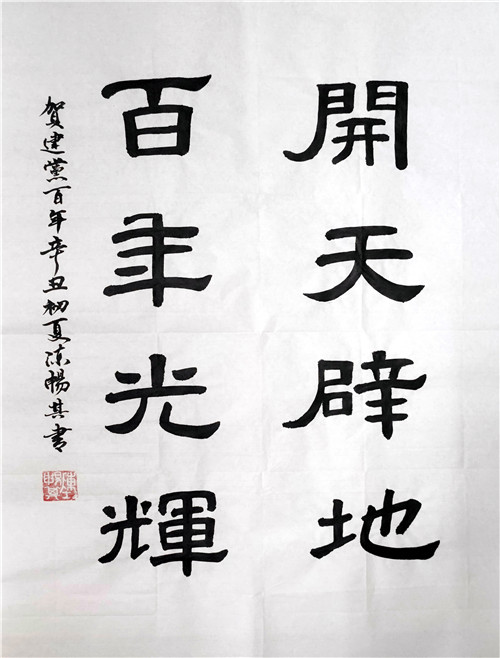 開天辟地
百年光輝
贺建黨百年辛丑初夏陈暢其書